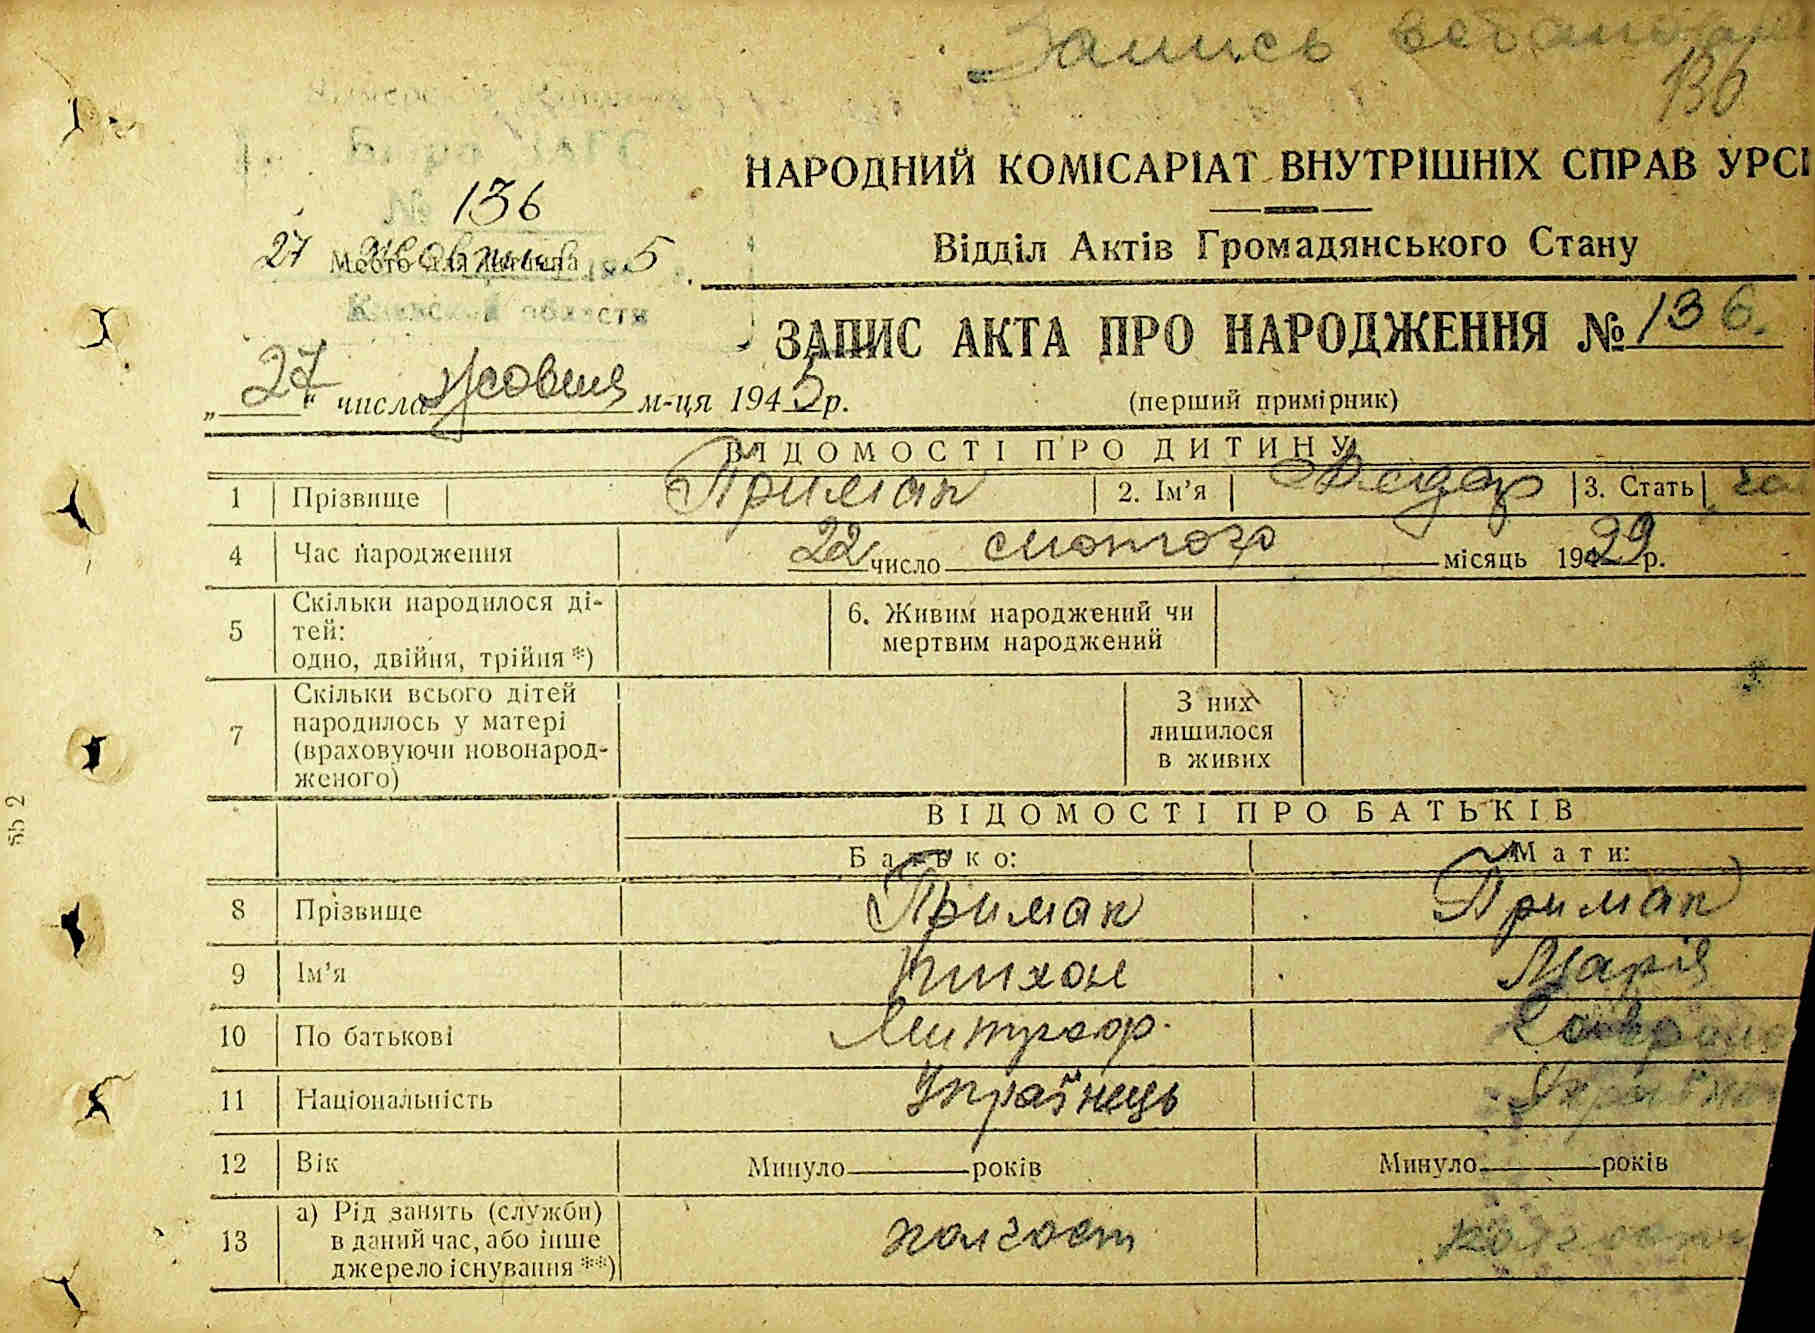 Запись
136
Бюро ЗАГС
№ 136
27 жовтня 5
Место для штампа
Киевской области
НАРОДНИЙ КОМІСАРІАТ ВНУТРІШНІХ СПРАВ УРСР
Відділ Актів Громадянського Стану
ЗАПИС АКТА ПРО НАРОДЖЕННЯ № 136.
„27“ числа жовтня м-ця 1945 р.
(перший примірник)
ВІДОМОСТІ ПРО ДИТИНУ
1 Прізвище Примак 2. Ім’я Федор 3. Стать
4 Час народження 22 число лютого місяць 1929 р.
5 Скільки народилося ді-
тей:
одно, двійня, трійня *)
6. Живим народжений чи
мертвим народжений
7 Скільки всього дітей
народилось у матері
(враховуючи новонарод-
женого)
З них
лишилося
в живих
ВІДОМОСТІ ПРО БАТЬКІВ
Батько: Мати:
8 Прізвище Примак Примак
9 Ім’я Тихон Марія
10 По батькові Митроф.
11 Національність Українець Українка
12 Вік Минуло років Минуло років
13 а) Рід занять (служби)
в даний час, або інше
джерело існування **)
колгосп колгосп
55 2